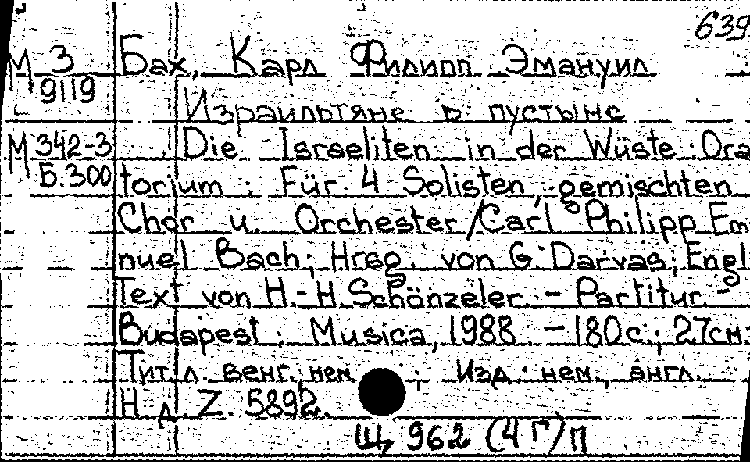 639
М 3 Бах, Карл Филипп Эмануил
9119
Израильтяне в пустыне
М 342-3 Die Israeliten in der Wüste. Ora
Б.300 torium. Für 4 Solisten, gemischten
Chor u. Orchester/Carl Philipp Em
nuel Bach; Hrsg. von G. Darvas; Engl
Text von H.-H. Schönzeler. - Partitur -
Budapest: Musica, 1988 - 180 с.; 27см.
Тит. л. венг., нем. Изд. нем., англ.
Н. д. Z. 5892.
Щ 962 (4 г)п